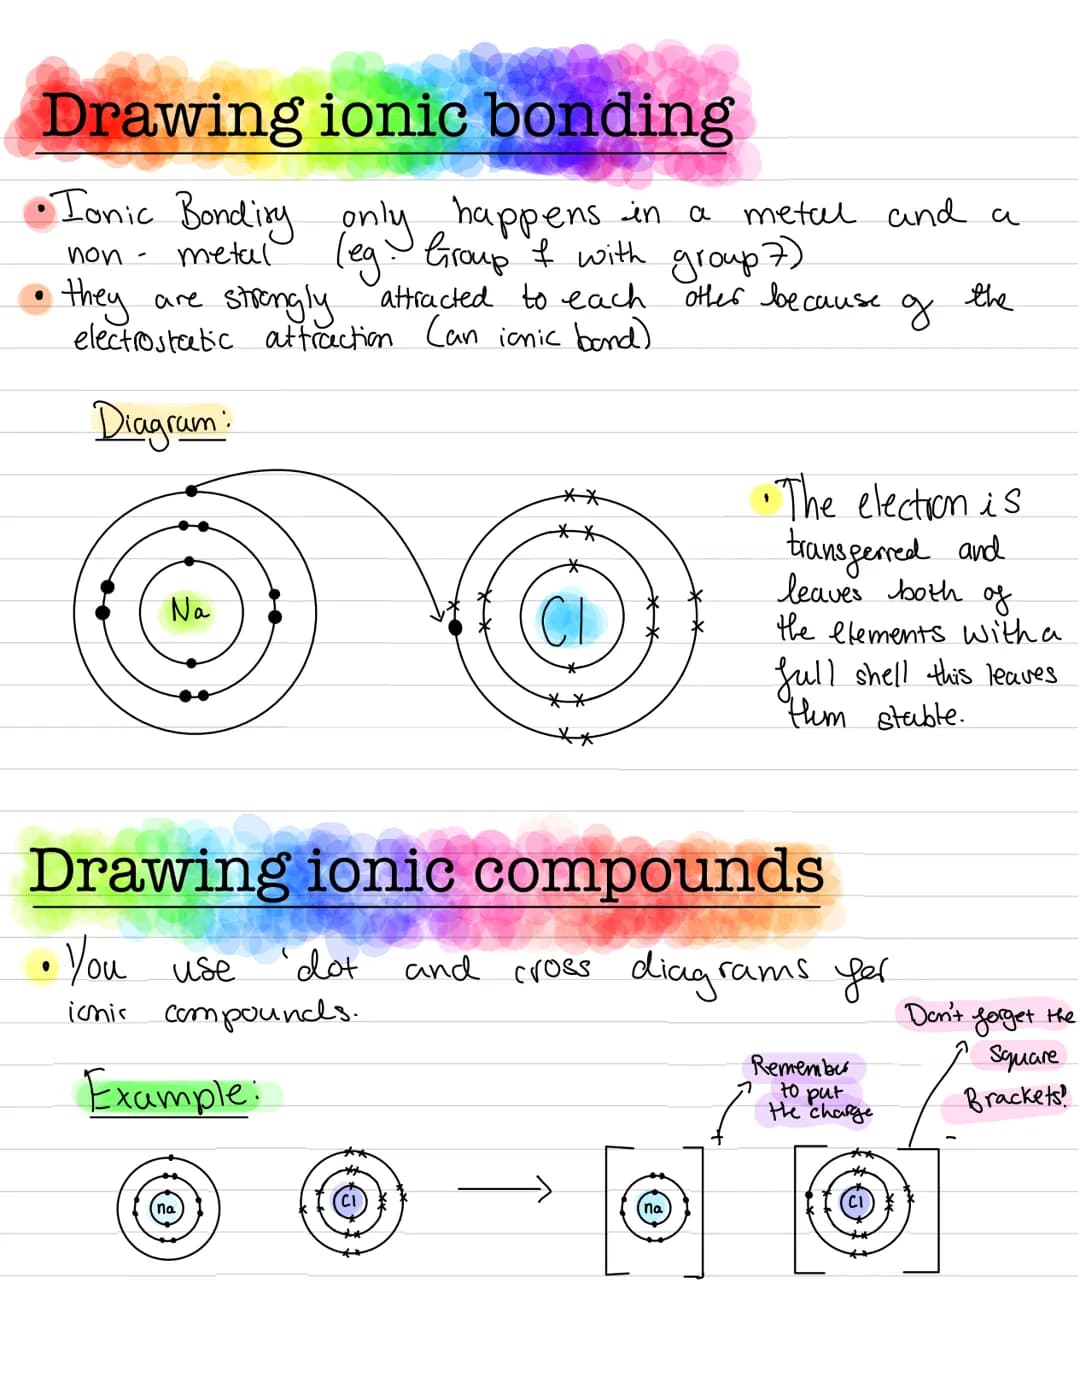 Drawing ionic bonding
• Ionic Bonding only happens in a metal and a
non - metal (eg. Group 1 with group 7)
• they are strongly attracted to each other because of the
electrostatic attraction (an ionic bond)
Diagram:
Na
Cl
• The electron is
transferred and
leaves both of
the elements with a
full shell this leaves
them stable.
Drawing ionic compounds
• You use 'dot and cross diagrams for
ionic compounds.
Don't forget the
Square
Brackets!
Remember
to put
the charge
Example:
+
-
na
Cl
na
Cl